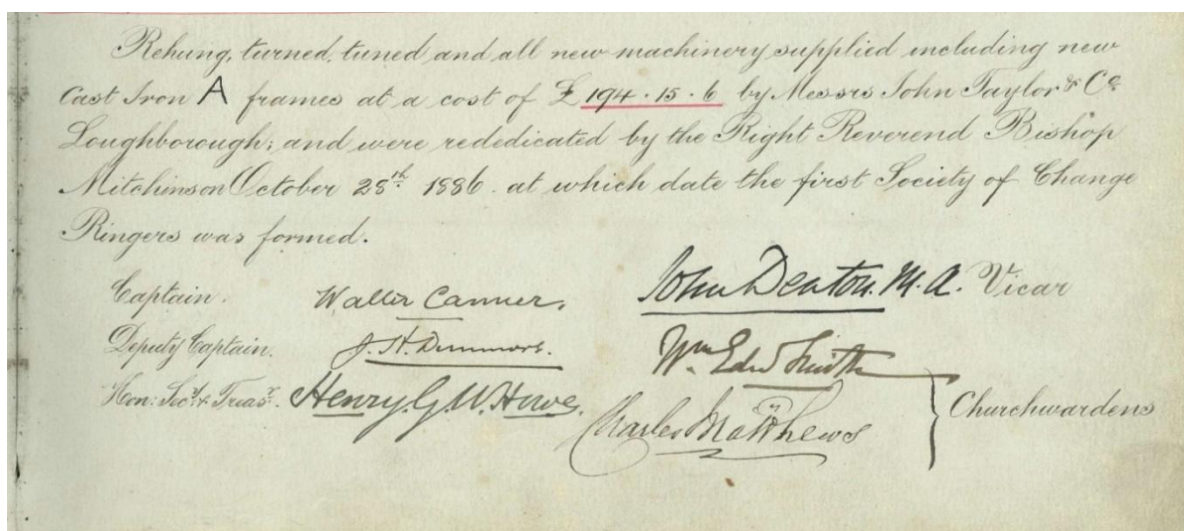 Rehung, turned, tuned and all new machinery supplied including new
Cast Iron A frames at a cost of £ 194 . 15 . 6 by Messrs John Taylor & Co
Loughborough; and were rededicated by the Right Reverend Bishop
Mitchinson October 28th 1886. at which date the first Society of Change
Ringers was formed.
Captain. Walter Canner. John Denton. M.A. Vicar
Deputy Captain. J. H. Dimmock. Wm Edwd Smith
Hon: Secy & Treasr. Henry. G. W. Howe. Charles Matthews Churchwardens